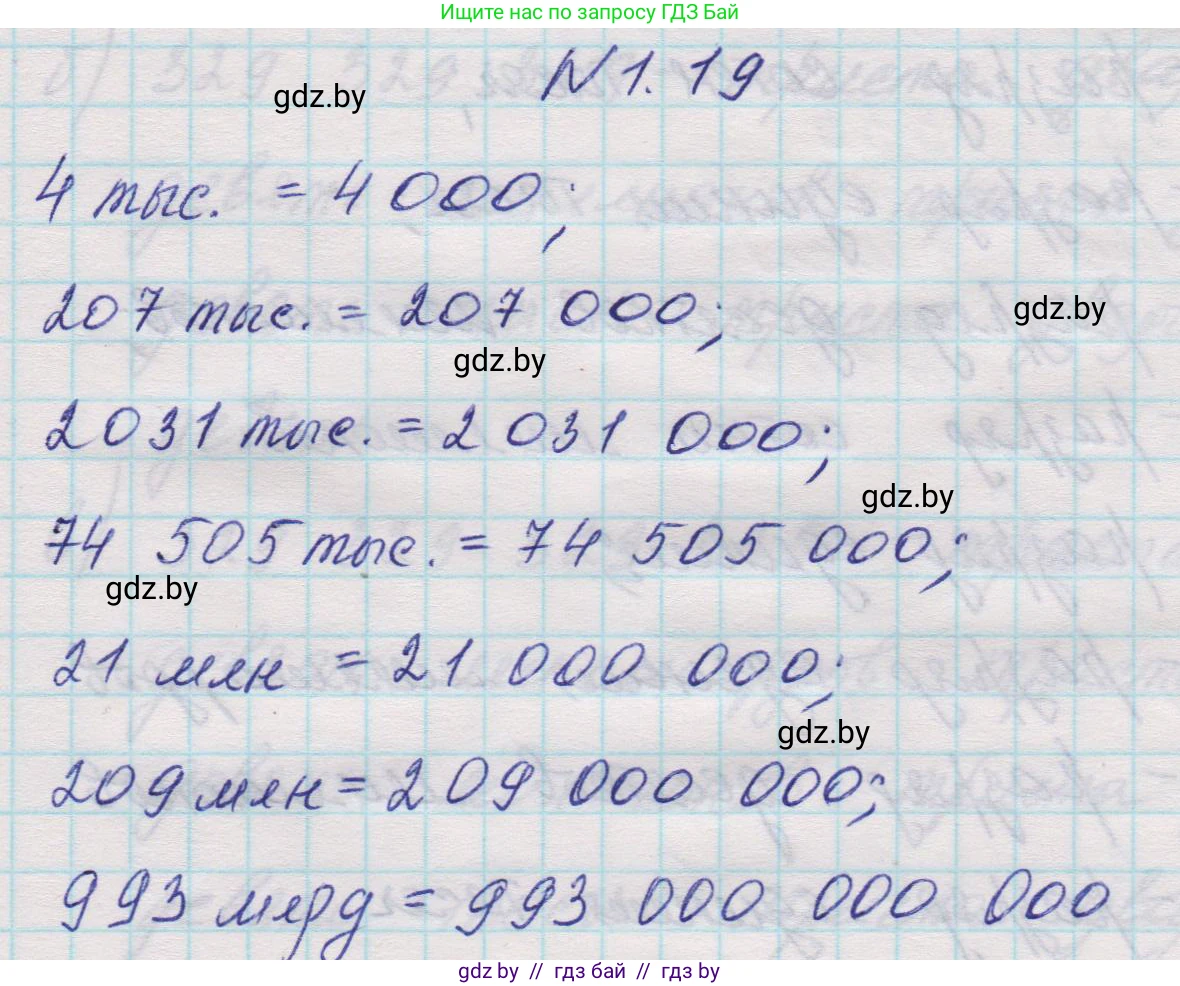 Ищите нас по запросу ГДЗ Бай
N 1.19
gdz.by
4 тыс. = 4 000;
207 тыс. = 207 000;
gdz.by
gdz.by
2031 тыс. = 2 031 000;
gdz.by
74 505 тыс. = 74 505 000;
gdz.by
21 млн = 21 000 000;
gdz.by
209 млн = 209 000 000;
993 млрд = 993 000 000 000
gdz.by // гдз бай // гдз by